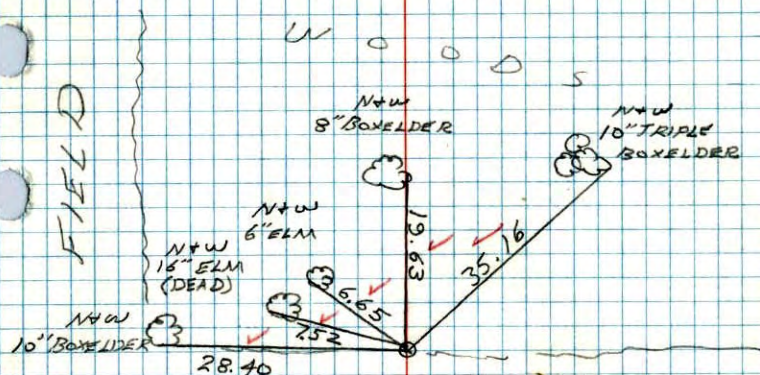 WOODS
FIELD
N+W
8" BOXELDER
N+W
10" TRIPLE
BOXELDER
N+W
6" ELM
N+W
16" ELM
(DEAD)
N+W
10" BOXELDER
19.63
35.16
6.65
7.52
28.40